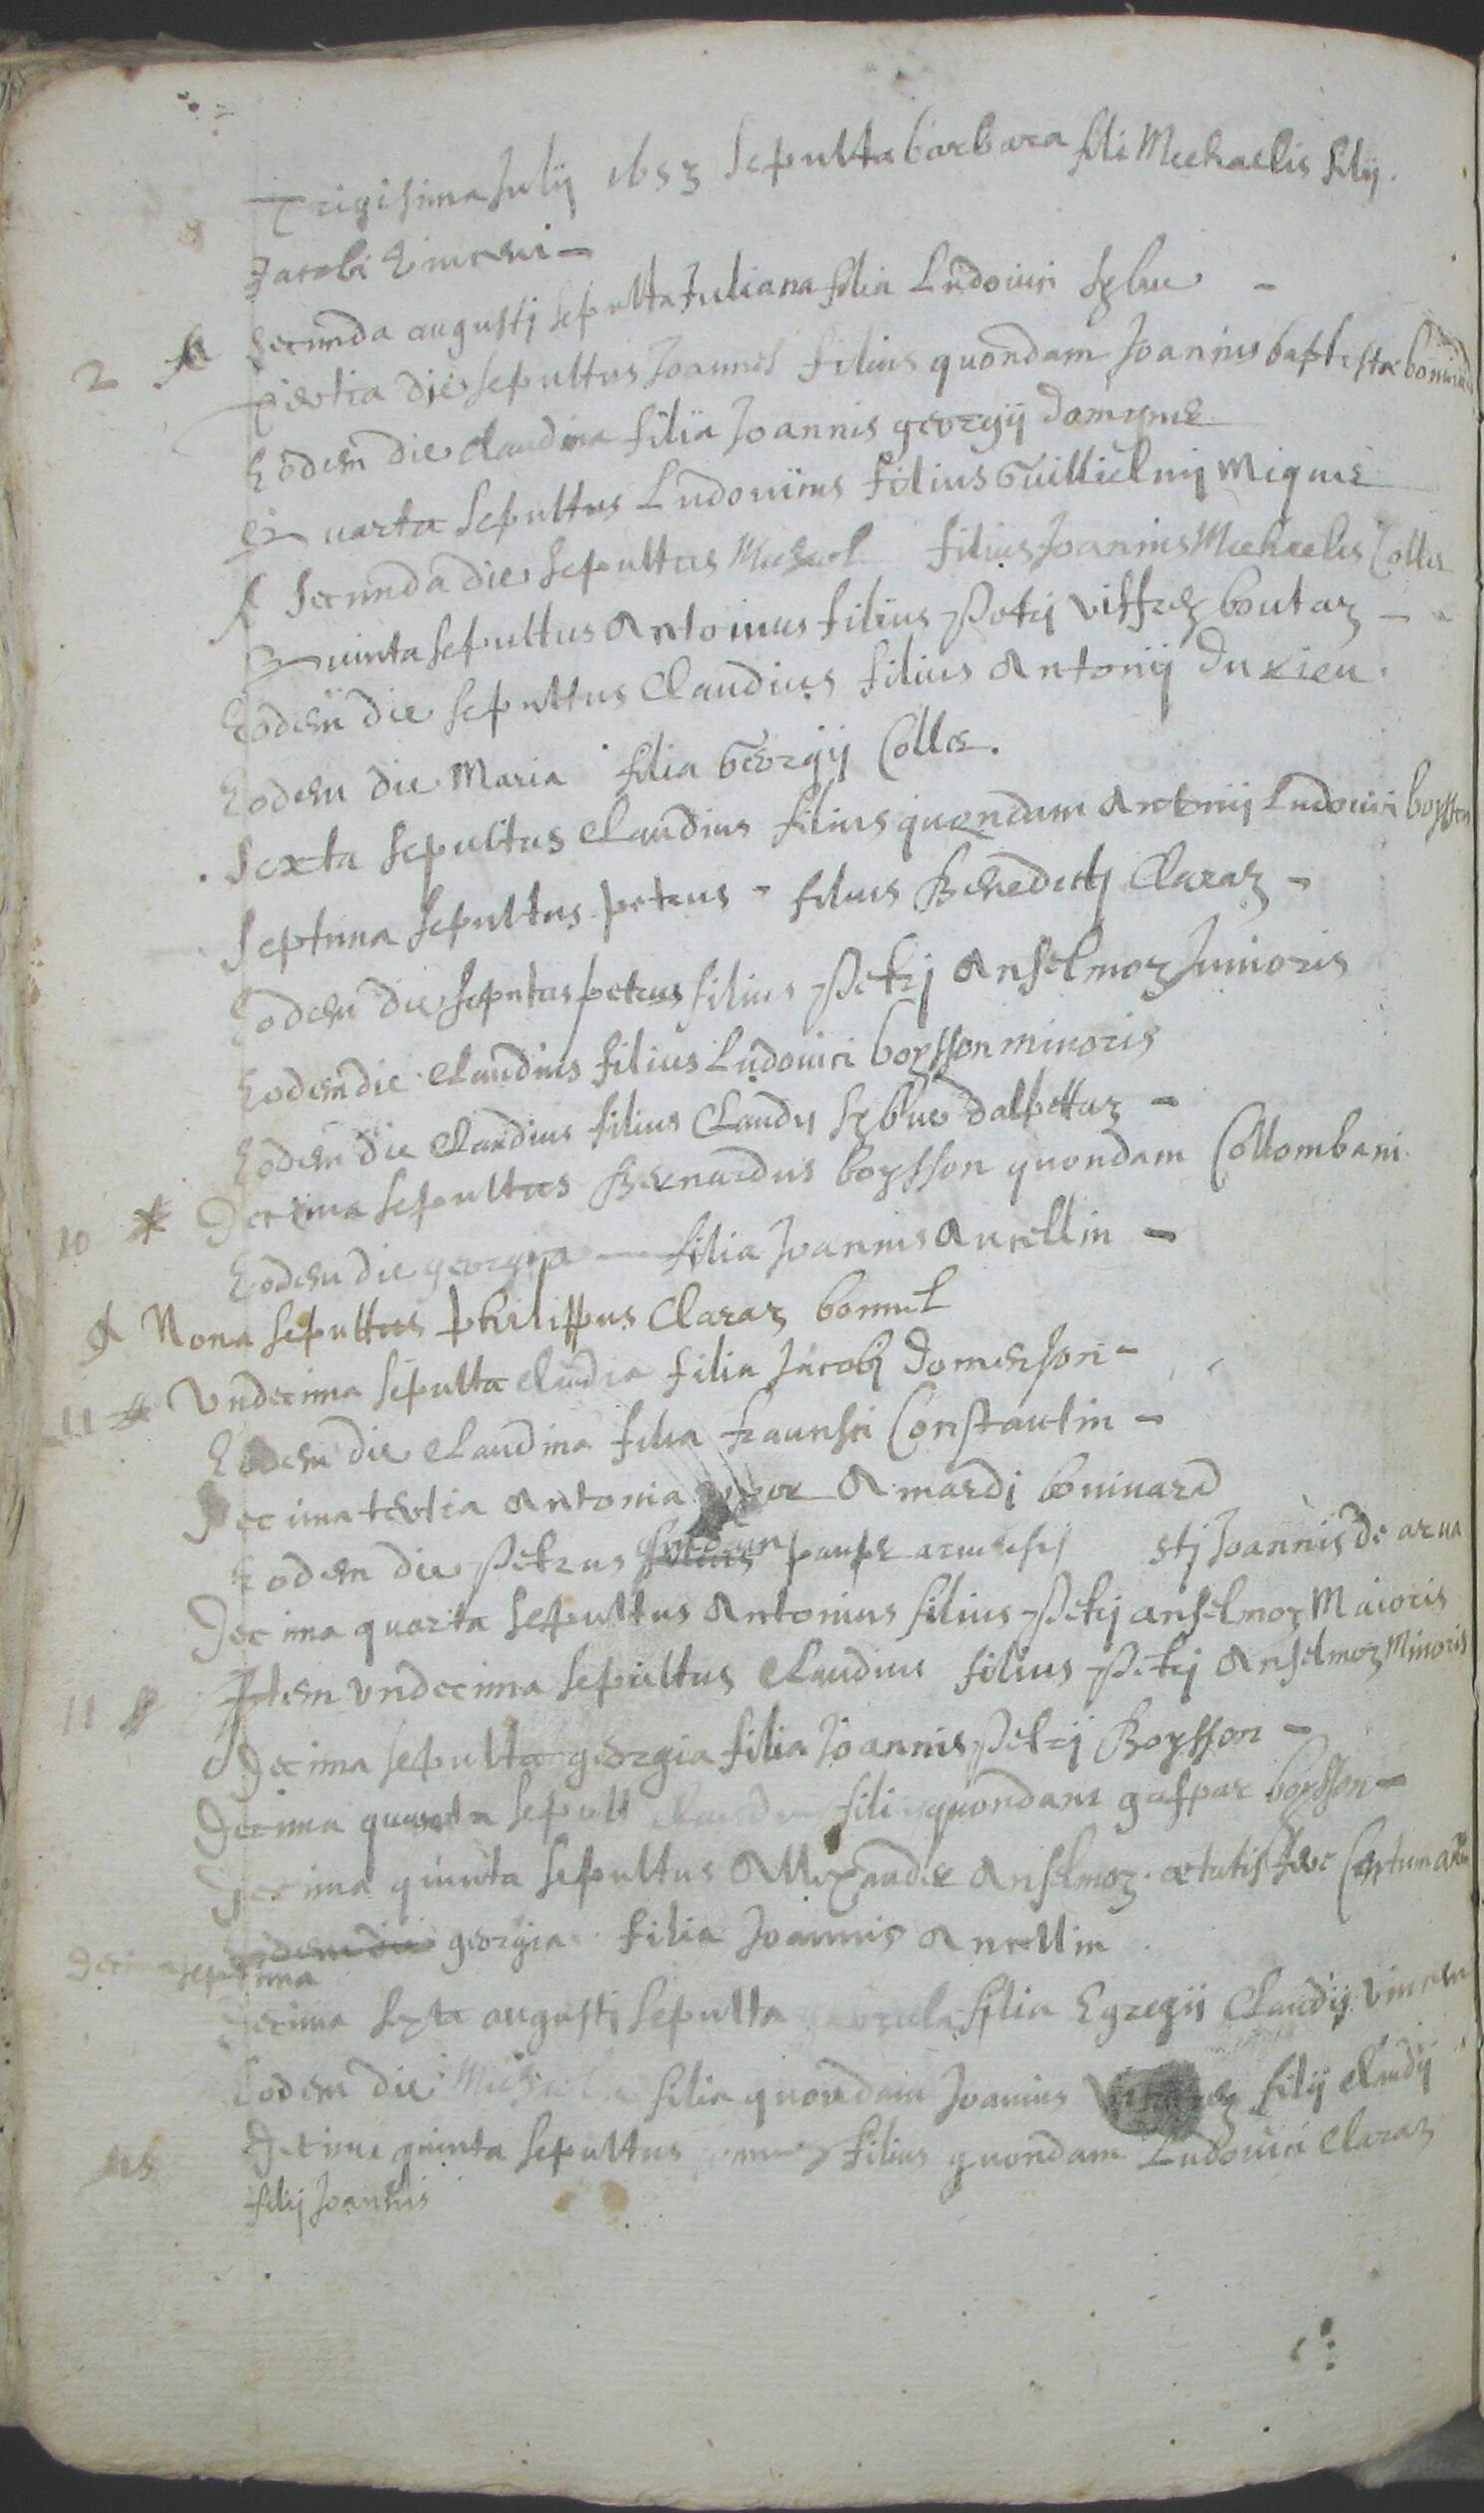 Trigisima Julij 1653 sepulta barbara fili Michaelis filij
Jacobi Emeeui -
2 Secunda augustj sepulta Juliana filia Ludouici Sybue -
Tertia die sepultus Joannes filius quondam Joannis baptistæ boniuard
Eodem die Claudina filia Joannis georgij Domenie
Quarta sepultus Ludouicus filius Guillielmj Miquie
Secunda die sepultus Michael filius Joannis Michaelis Colle
Quinta sepultus Antonius filius Petrj Viffrey boutaz -
Eodem die sepultus Claudius filius Antonij Durieu
Eodem die Maria filia Georgij Colle.
Sexta sepultus Claudius filius quondam Antonij Ludouici boysson
Septima sepultus petrus - filius Benedictj Claraz -
Eodem die sepultus petrus filius Petrj Anselmoz Junioris
Eodem die Claudius filius Ludouici boysson minoris
Eodem die Claudius filius Claudij Sybue dalbettaz -
10 Decima sepultus Bernardus boysson quondam Collombani
Eodem die georgia filia Joannis Ancellin -
Nona sepultus philippus Claraz bonnet
11 Vndecima sepulta Claudia filia Jacobj Domenson -
Eodem die Claudina filia francisci Constantin -
Decima tertia Antonia uxor Amardj boniuard
Eodem die Petrus paupr stj Joannis de arua
Decima quarta sepultus Antonius filius Petrj anselmoz Maioris
11 Item vndecima sepultus Claudius filius Petrj Anselmoz Minoris
Decima sepulta georgia filia Joannis Petrj Boysson -
Decima quarta sepult filius quondam gaspar boysson -
Decima quinta sepultus Allexander Anselmoz ætatis Centum
Decima septima Eodem die georgia filia Joannis Ancellin
Decima sexta augusti sepulta filia Egregij Claudij Vincen
Eodem die filia quondam Joannis filij Claudij
15 Decima quinta sepultus filius quondam Ludouici Claraz
filij Joannis